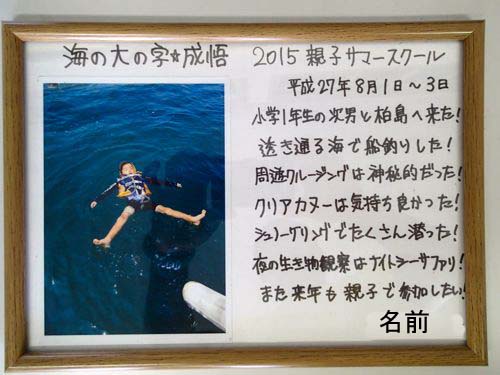 海の大の字★成悟
2015 親子サマースクール
平成27年8月1日～3日
小学1年生の次男と柏島へ来た!
透き通る海で船釣りした!
周遊クルージングは神秘的だった!
クリアカヌーは気持ち良かった!
シュノーケリングでたくさん潜った!
夜の生き物観察はナイトシーサファリ!
また来年も親子で参加したい!
名前